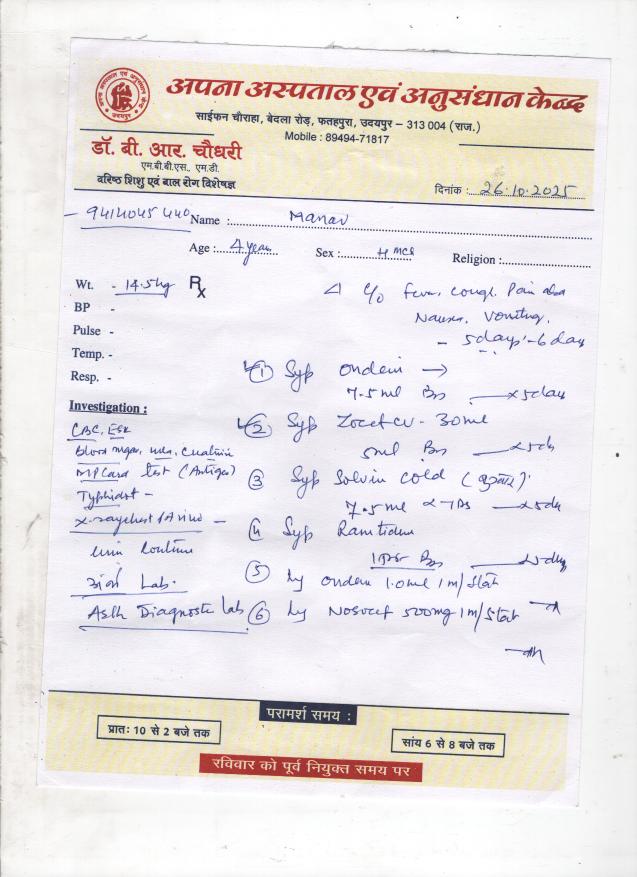 अपना अस्पताल एवं अनुसंधान केन्द्र
अपना अस्पताल एवं अनुसंधान केन्द्र उदयपुर
साईफन चौराहा, बेदला रोड़, फतहपुरा, उदयपुर – 313 004 (राज.)
Mobile : 89494-71817
डॉ. बी. आर. चौधरी
एम.बी.बी.एस., एम.डी.
वरिष्ठ शिशु एवं बाल रोग विशेषज्ञ
दिनांक : 26.10.2025
- 9414045440 Name : Manav
Age : 4 year Sex : Religion :
Wt. - 14.5kg Rx
c/o Fever, cough, Pain abd
BP -
Nausea, Vomiting,
Pulse -
- 5days - 6 day
Temp. -
① Syp Ondem →
Resp. -
7.5ml BD x5day
Investigation :
② Syp Zocef CV - 30ml
CBC, ESR
5ml BD
Blood sugar, urea, creatinine
③ Syp Solvin Cold (बुखार)
MP Card test (Antigen)
7.5ml
Typhidot -
④ Syp
X-ray chest PA view -
BD
Urin Routine
⑤ Inj Ondem 1.0ml 1m/Stat
Lab.
⑥ Inj 500mg 1m/Stat
Diagnostic Lab
परामर्श समय :
प्रातः 10 से 2 बजे तक
सांय 6 से 8 बजे तक
रविवार को पूर्व नियुक्त समय पर